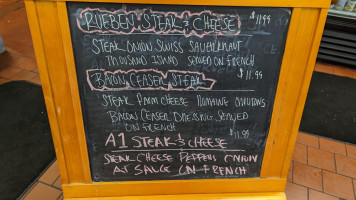 RUEBEN STEAK & CHEESE $11.99
STEAK ONION SWISS SAUERKRAUT
THOUSAND ISLAND SERVED ON FRENCH
BACON CEASER STEAK $11.99
STEAK PARM CHEESE ROMAINE ONIONS
BACON CEASER DRESSING SERVED
ON FRENCH $11.99
A1 STEAK & CHEESE
STEAK CHEESE PEPPERS ONION
A1 SAUCE ON FRENCH